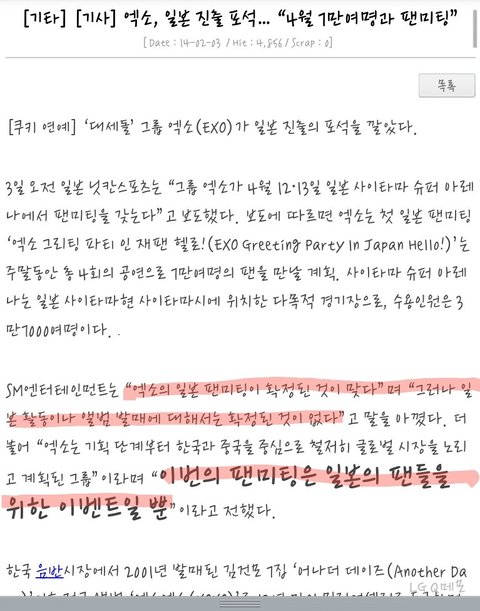 [기타] [기사] 엑소, 일본 진출 포석... "4월 7만여명과 팬미팅"
[Date : 14-02-03 / Hit : 4,856 / Scrap : 0]
목록
[쿠키 연예] '대세돌' 그룹 엑소(EXO)가 일본 진출의 포석을 깔았다.
3일 오전 일본 닛칸스포츠는 "그룹 엑소가 4월 12·13일 일본 사이타마 슈퍼 아레
나에서 팬미팅을 갖는다"고 보도했다. 보도에 따르면 엑소는 첫 일본 팬미팅
'엑소 그리팅 파티 인 재팬 헬로!(EXO Greeting Party In Japan Hello!)'는
주말동안 총 4회의 공연으로 7만여명의 팬을 만날 계획. 사이타마 슈퍼 아레
나는 일본 사이타마현 사이타마시에 위치한 다목적 경기장으로, 수용인원은 3
만7000여명이다. .
SM엔터테인먼트는 "엑소의 일본 팬미팅이 확정된 것이 맞다"며 "그러나 일
본 활동이나 앨범 발매에 대해서는 확정된 것이 없다"고 말을 아꼈다. 더
불어 "엑소는 기획 단계부터 한국과 중국을 중심으로 철저히 글로벌 시장을 노리
고 계획된 그룹"이라며 "이번의 팬미팅은 일본의 팬들을
위한 이벤트일 뿐"이라고 전했다.
한국 음반시장에서 2001년 발매된 김건모 7집 '어나더 데이즈(Another Da
LG Q메모